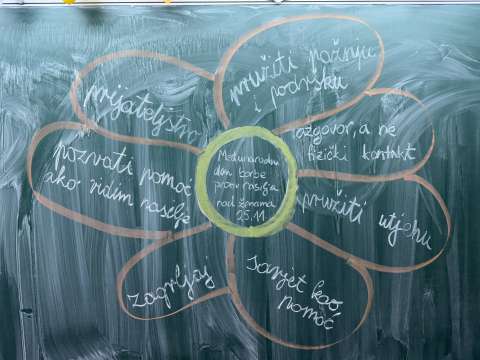 Međunarodni
dan borbe
protiv nasilja
nad ženama
25.11
pružiti pažnju
i podršku
razgovor, a ne
fizički kontakt
pružiti utjehu
savjet kao
pomoć
zagrljaj
pozvati pomoć
ako vidim nasilje
prijateljstvo